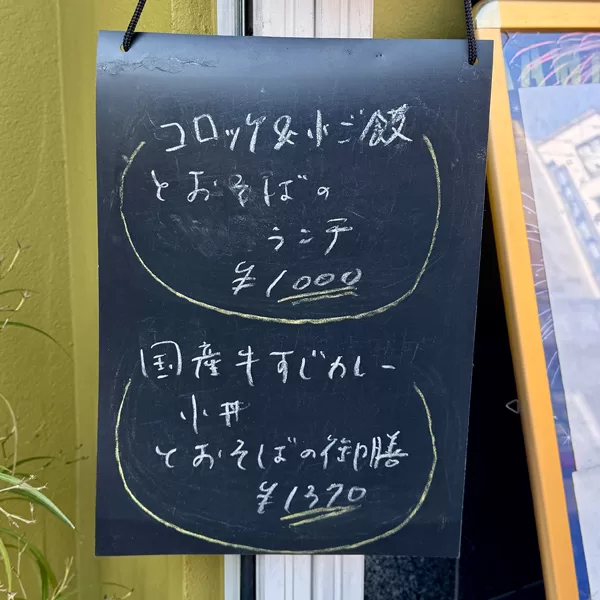 コロッケ&小ご飯
とおそばの
ランチ
¥1000
国産牛すじカレー
小丼
とおそばの御膳
¥1370